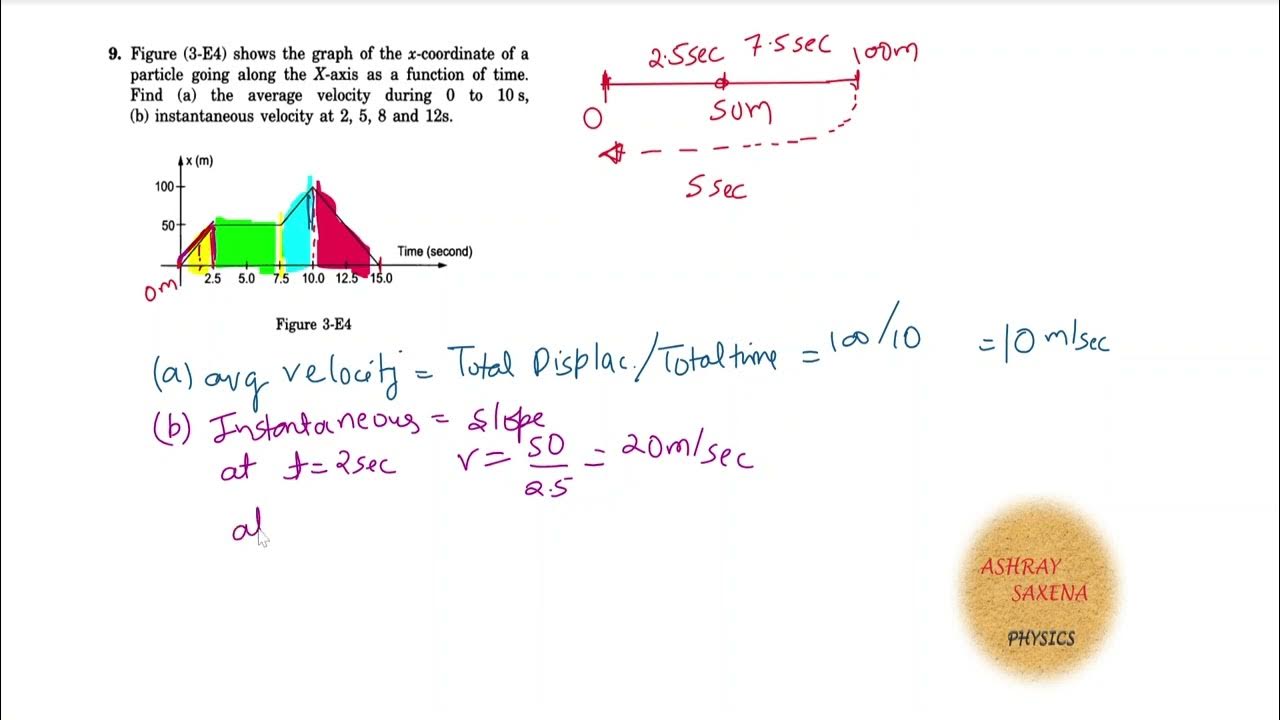 9. Figure (3-E4) shows the graph of the x-coordinate of a
particle going along the X-axis as a function of time.
Find (a) the average velocity during 0 to 10 s,
(b) instantaneous velocity at 2, 5, 8 and 12s.
2.5sec 7.5sec 100m
0 50m
5sec
x (m)
100
50
Time (second)
2.5 5.0 7.5 10.0 12.5 15.0
0m
Figure 3-E4
(a) avg velocity = Total Displac./Total time = 100/10 = 10 m/sec
(b) Instantaneous = slope
at t = 2sec v = 50/2.5 = 20m/sec
at
ASHRAY
SAXENA
PHYSICS